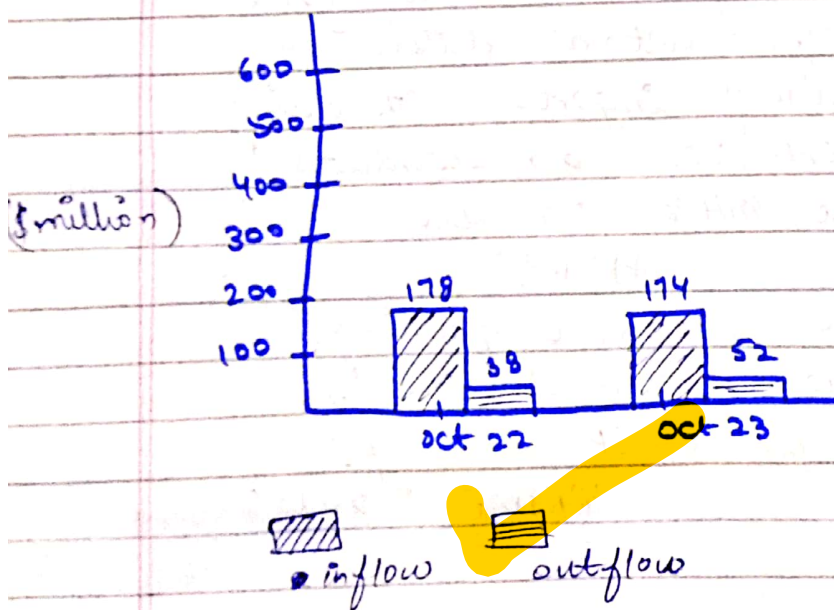 600
500
400
($million)
300
200
178
174
100
38
52
oct 22
oct 23
inflow
outflow